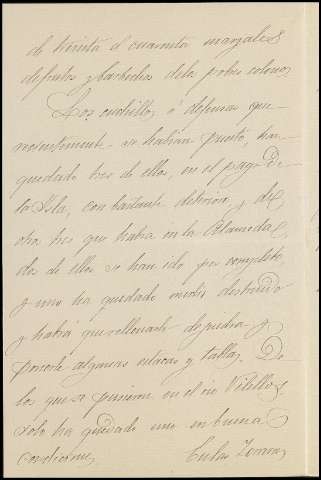 de treinta á cuarenta marjales
de frutos y barbechos de los pobres colonos
Los cuchillos ó defensas que
recientemente se habian puesto, han
quedado tres de ellos, en el pago de
la Isla, con bastante deterioro, y de
otros tres que habia en la Alameda,
dos de ellos se han ido por completo
y uno ha quedado medio destruido
y habrá que rellenarle de piedra y
ponerle algunas estacas y tablas. De
los que se pusieron en el rio Velillos
solo ha quedado uno en buenas
condiciones.